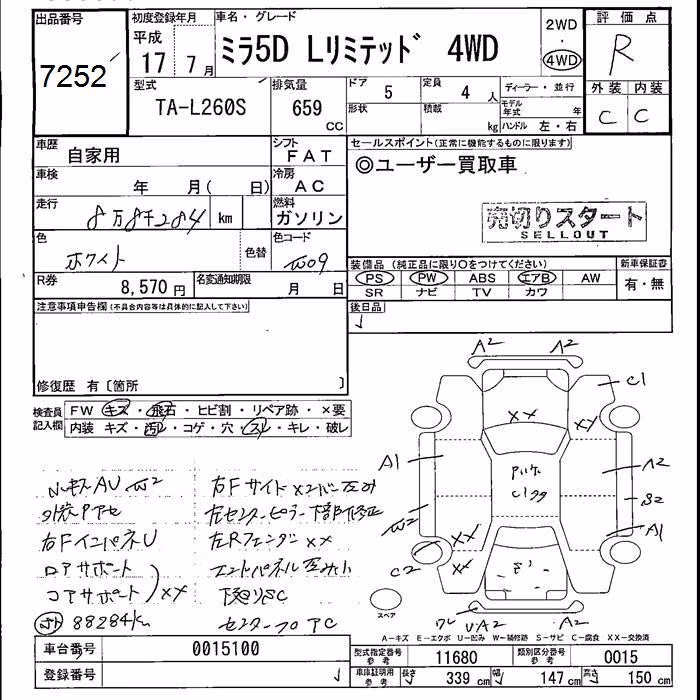 出品番号
7252
初度登録年月
平成
17 7月
車名・グレード
ミラ5D Lリミテッド 4WD
2WD
・
4WD
評価点
R
外装 内装
C C
型式
TA-L260S
排気量
659
CC
ドア
5
定員
4人
形状
積載
kg
ディーラー・並行
モデル年式 年
ハンドル 左・右
車歴
自家用
シフト
FAT
車検
年 月( 日)
冷房
AC
走行
8万8千284
km
燃料
ガソリン
色
ホワイト
色替
色コード
W09
R券
8,570円
名変通知期限
月 日
セールスポイント(正常に機能するものに限ります)
◎ユーザー買取車
売切りスタート
SELLOUT
装備品(純正品に限り○をつけてください)
PS PW ABS エアB AW
SR ナビ TV カワ
新車保証書
有・無
後日品
注意事項申告欄(不具合内容等は具体的に記入して下さい)
修復歴 有〔箇所 〕
検査員
記入欄
FW キズ・飛石・ヒビ割・リペア跡・×要
内装 キズ・汚レ・コゲ・穴・スレ・キレ・破レ
ルーキズAU W2
外装Pアセ
右FインパネU
ロアサポート
コアサポート XX
88284km
右Fサイドメンバー歪み
左センターピラー下部修正
左Rフェンダー XX
エンドパネル歪み小
下廻りSC
センターフロアC
A2 A2
C1
XX XY
A1 A2
S2
W2 A1
XX
C2 XX
ワレ UA2 A2
スペア
A-キズ E-エクボ U-凹み W-補修跡 S-サビ C-腐食 XX-交換済
車台番号
0015100
登録番号
型式指定番号
参考
11680
類別区分番号
参考
0015
車庫証明用
参考
長さ 339cm 幅 147cm 高さ 150cm